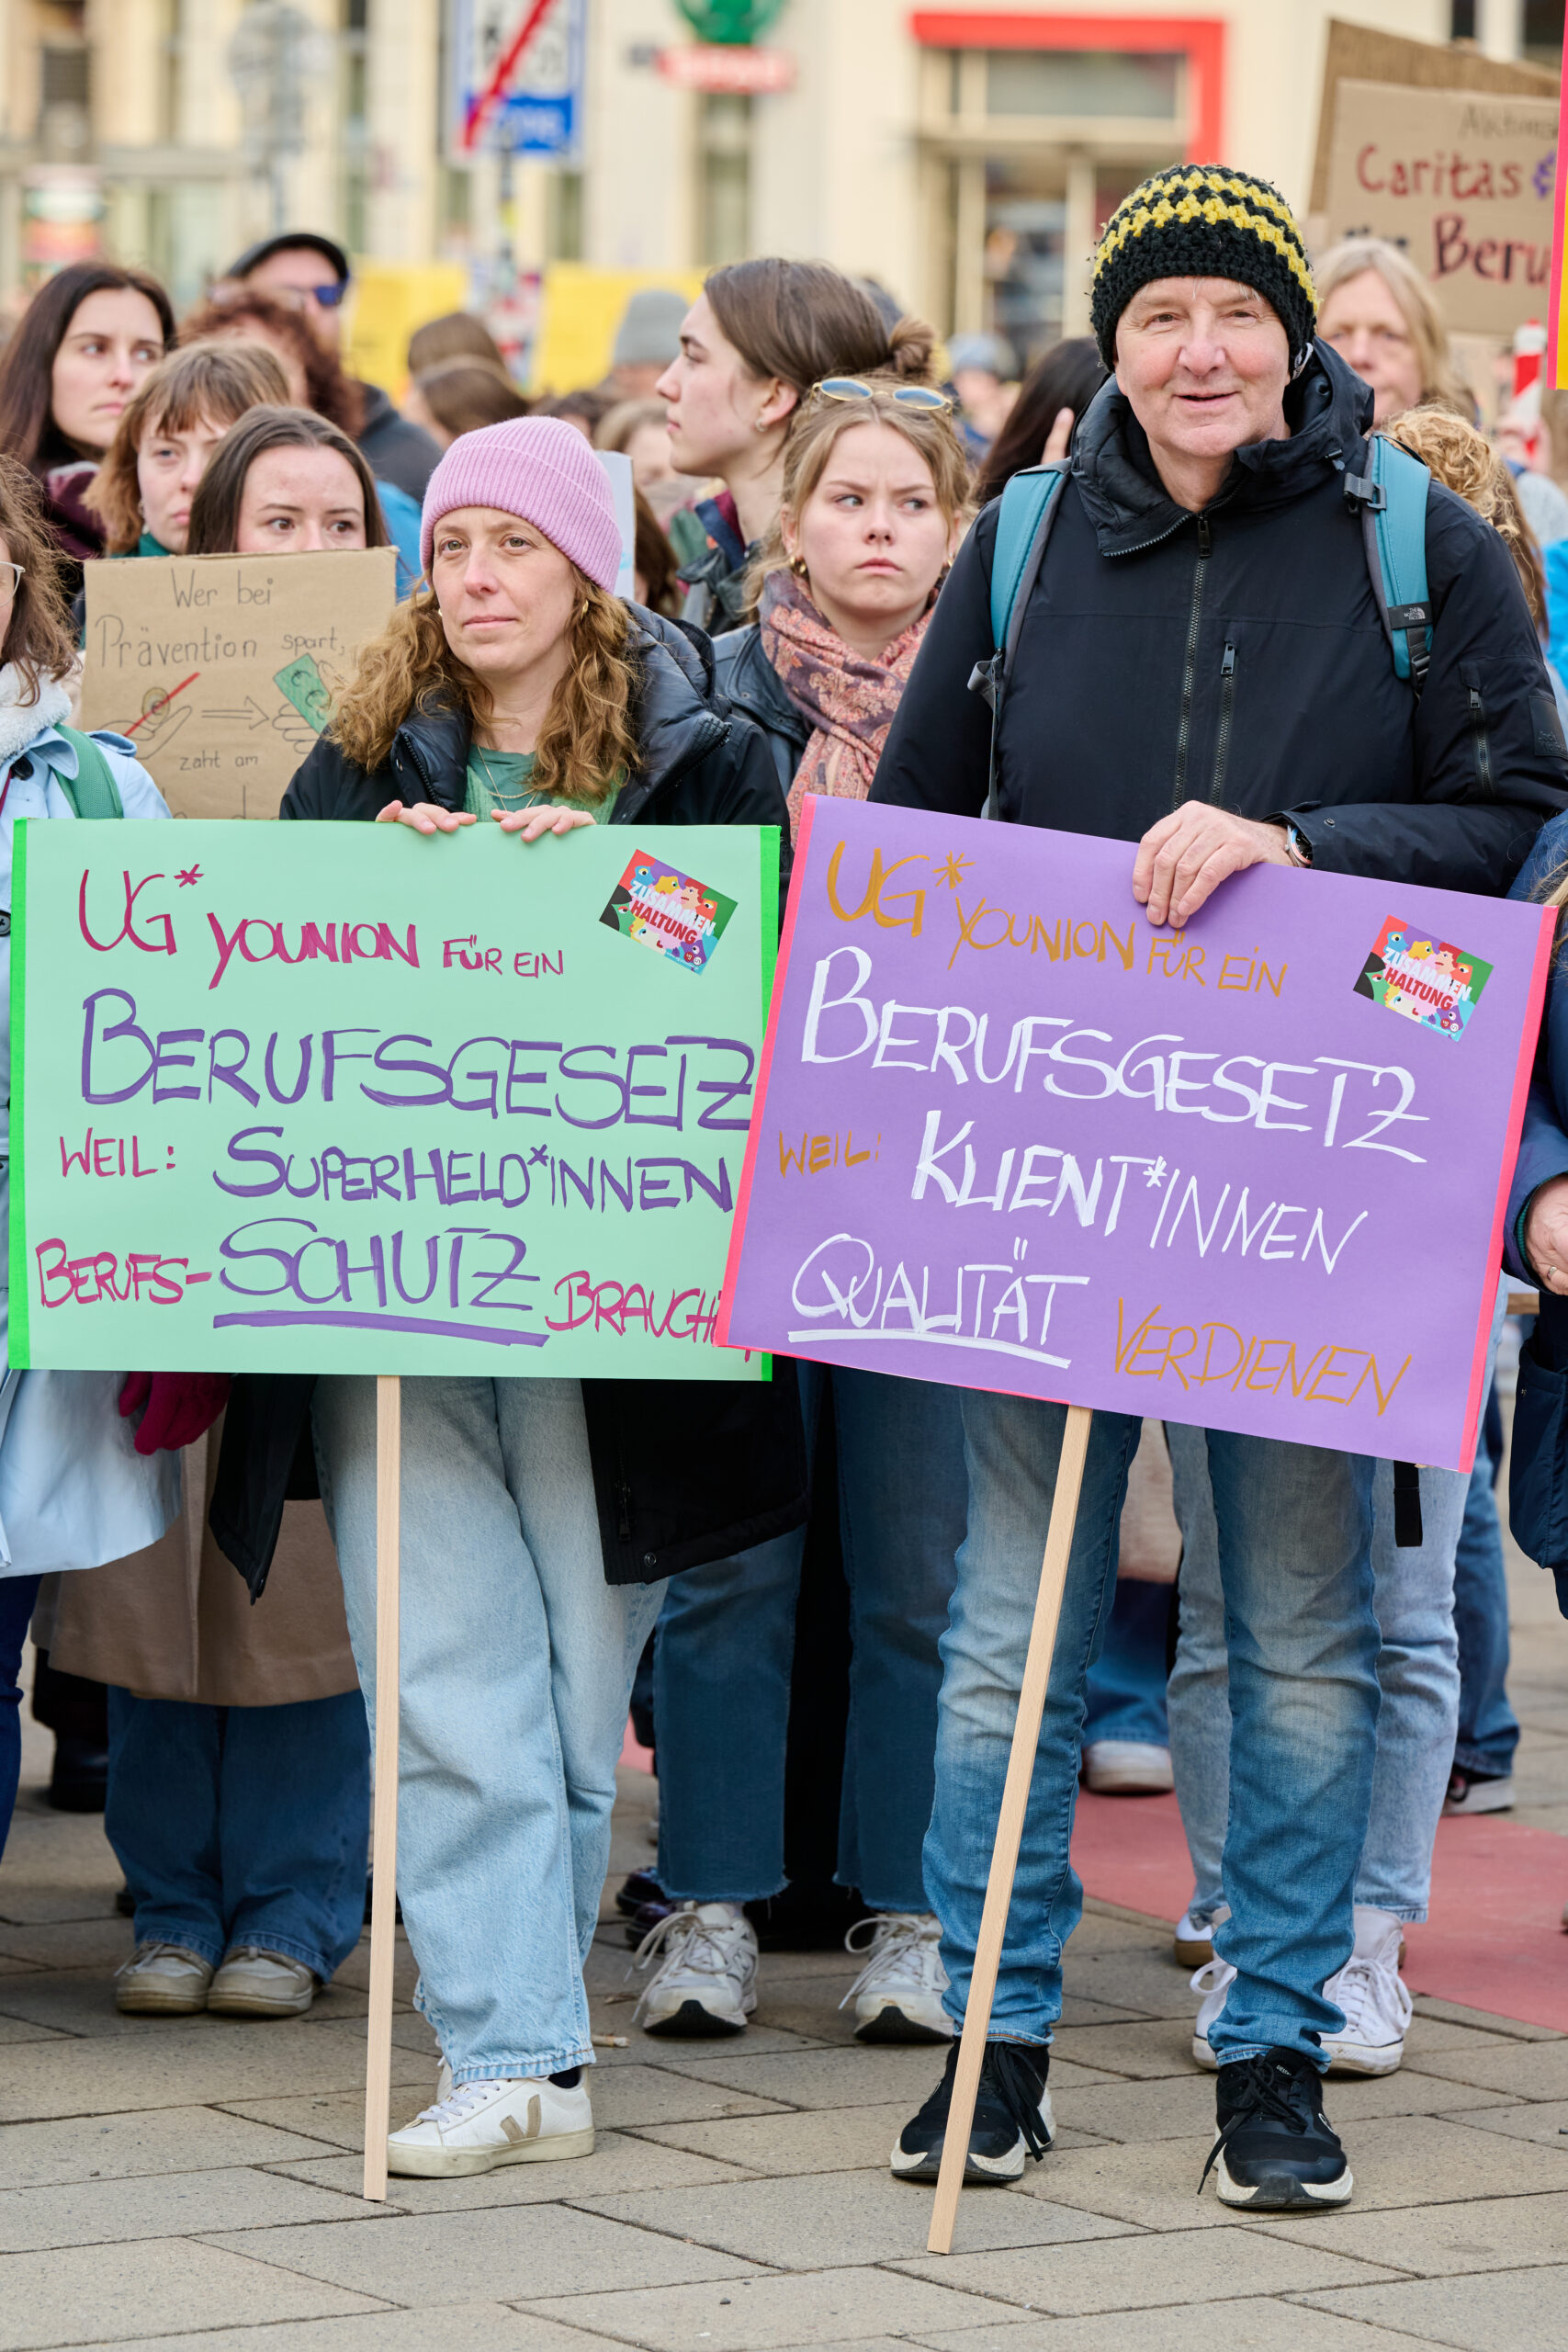 Caritas &
Beru
Wer bei
Prävention spart,
zaht am
UG* YOUNION FÜR EIN
ZUSAMMEN
HALTUNG
BERUFSGESETZ
WEIL: SUPERHELD*INNEN
BERUFS-SCHUTZ BRAUCH
UG* YOUNION FÜR EIN
ZUSAMMEN
HALTUNG
BERUFSGESETZ
WEIL: KLIENT*INNEN
QUALITÄT VERDIENEN